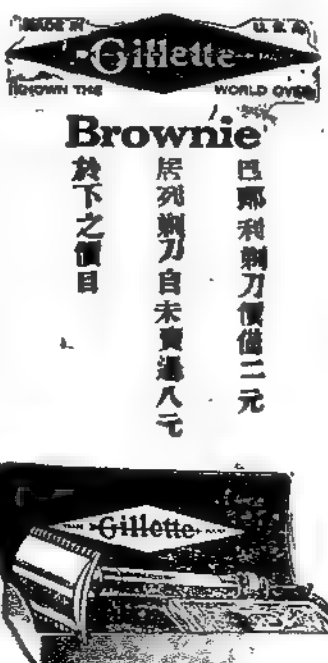 MADE IN U.S.A.
Gillette
KNOWN THE WORLD OVER
Brownie
巴郎利剃刀價僅二元
居列剃刀自未賣過八元
於下之價目
Gillette